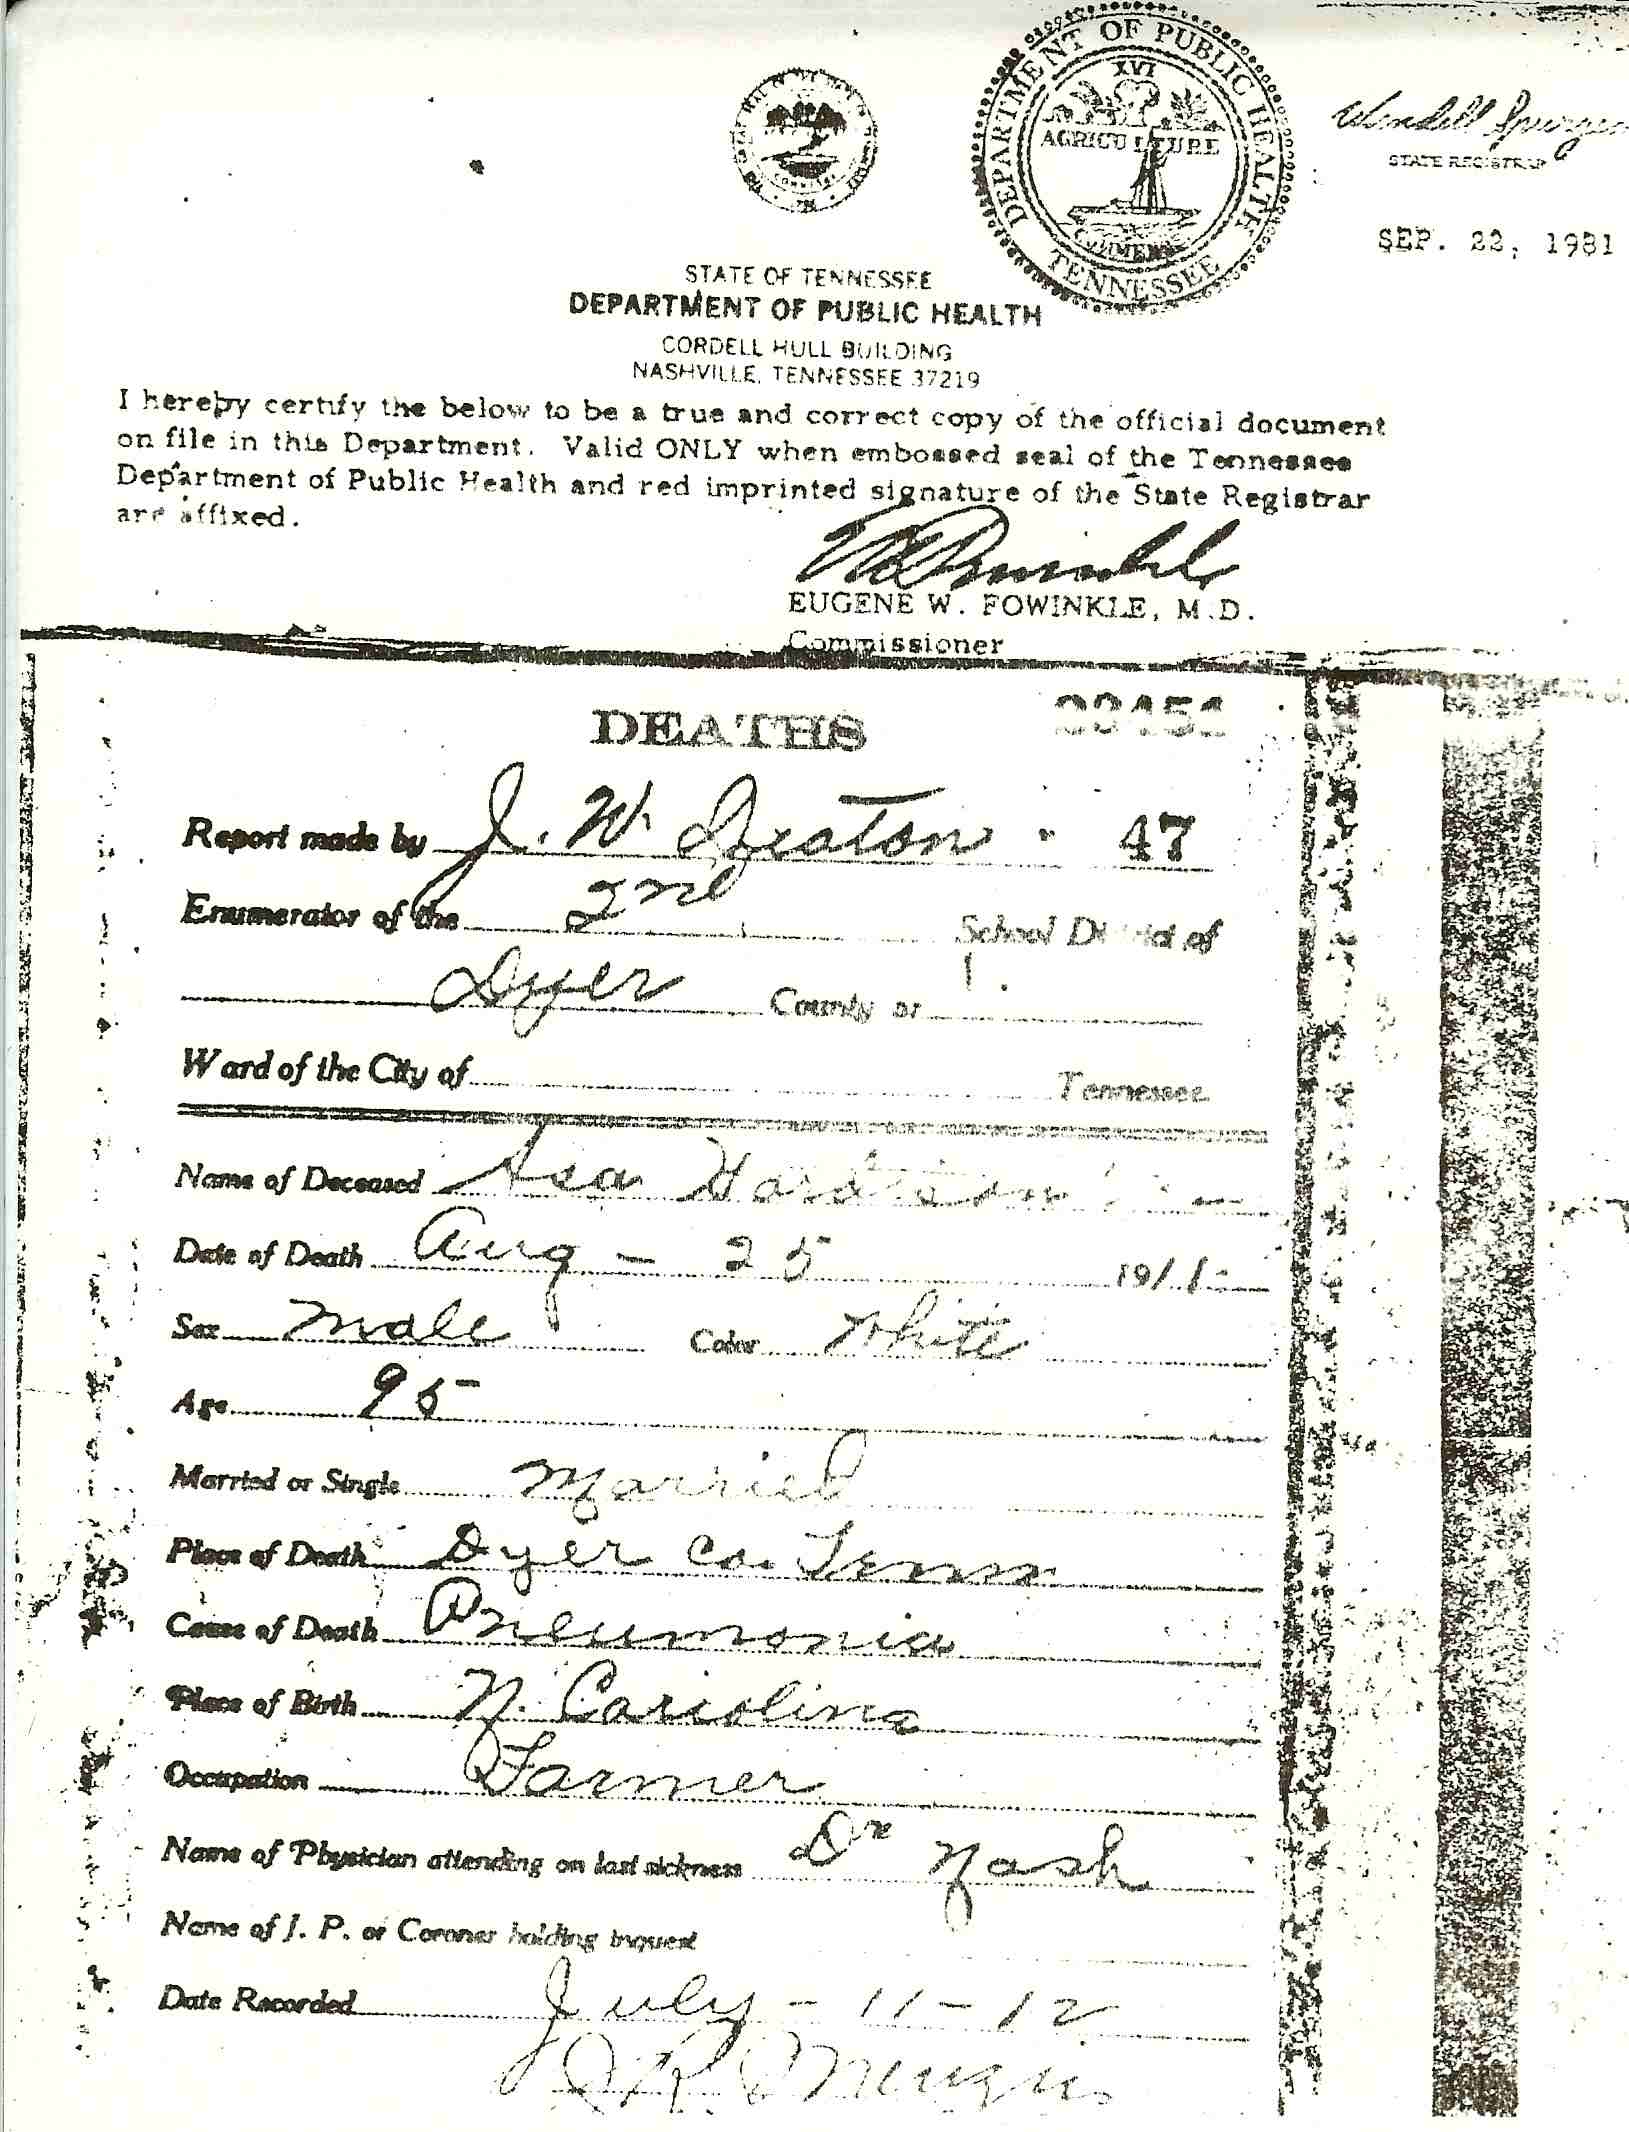 DEPARTMENT OF PUBLIC HEALTH
TENNESSEE
XVI
AGRICULTURE
COMMERCE
Wendell Spurgeon
STATE REGISTRAR
SEP. 22, 1981
STATE OF TENNESSEE
DEPARTMENT OF PUBLIC HEALTH
CORDELL HULL BUILDING
NASHVILLE, TENNESSEE 37219
I hereby certify the below to be a true and correct copy of the official document
on file in this Department. Valid ONLY when embossed seal of the Tennessee
Department of Public Health and red imprinted signature of the State Registrar
are affixed.
EUGENE W. FOWINKLE, M.D.
Commissioner
DEATHS
Report made by J. W. 47
Enumerator of the 2nd School District of
Dyer County or
Ward of the City of Tennessee
Name of Deceased Asa Hardison
Date of Death Aug - 25 1911
Sex Male Color White
Age 95
Married or Single Married
Place of Death Dyer Co. Tenn
Cause of Death Pneumonia
Place of Birth N. Cariolina
Occupation Farmer
Name of Physician attending on last sickness Dr Nash
Name of J. P. or Coroner holding inquest
Date Recorded July - 11 - 12